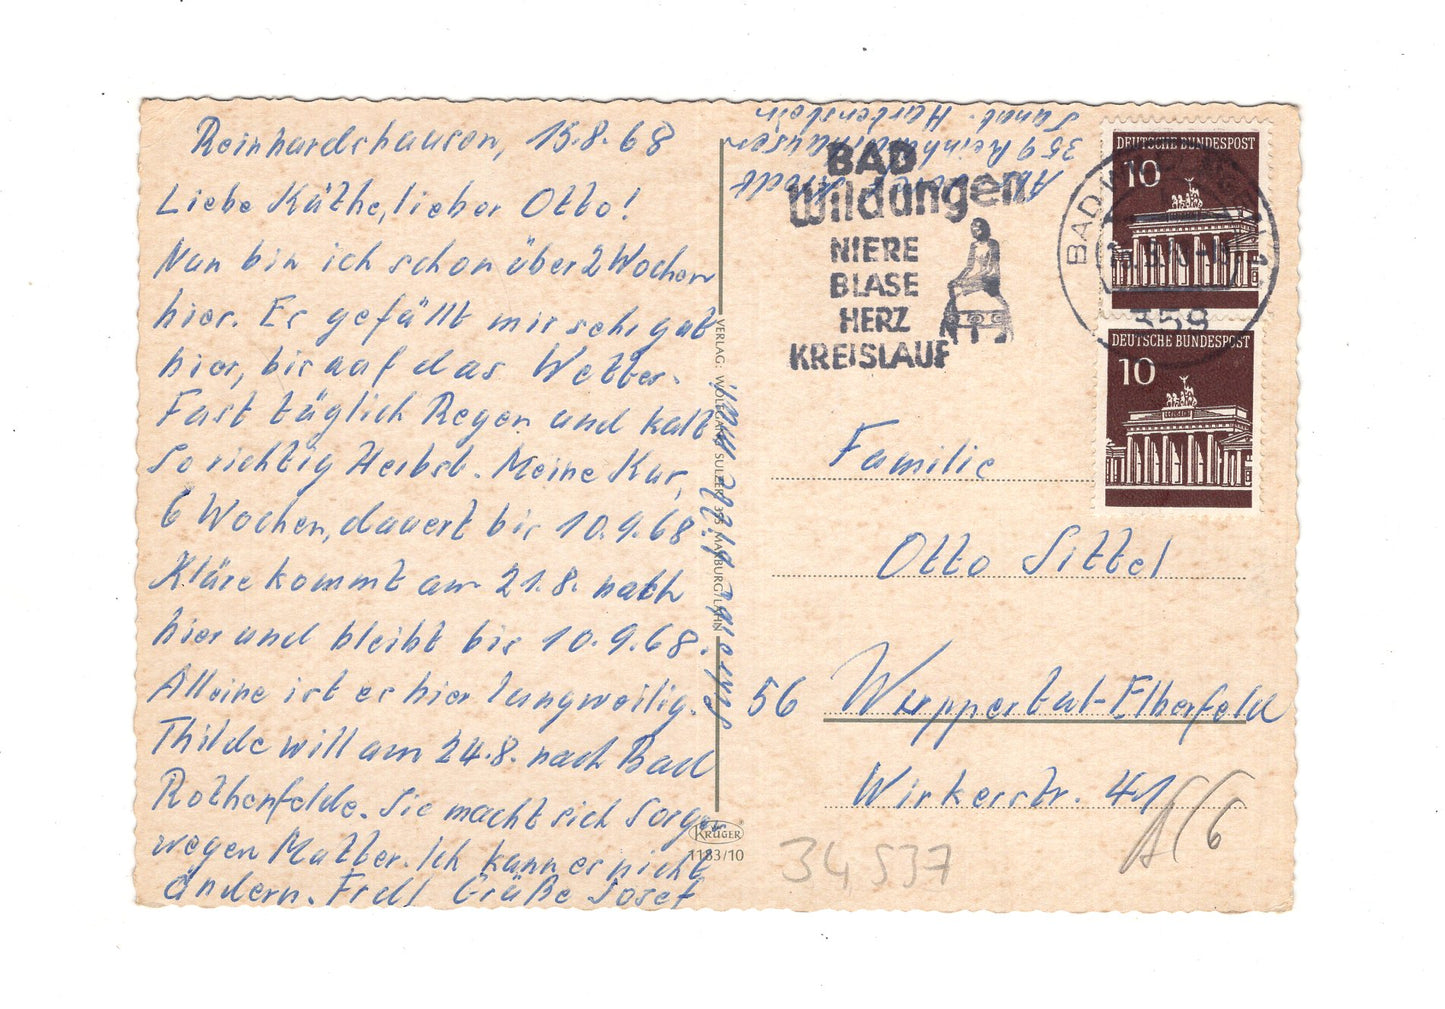 Reinhardshausen, 15.8.68
Liebe Käthe, lieber Otto!
Nun bin ich schon über 2 Wochen
hier. Es gefällt mir sehr gut
hier, bis auf das Wetter.
Fast täglich Regen und kalt
so richtig Herbst. Meine Kur,
6 Wochen, dauert bis 10.9.68
Kläre kommt am 21.8. nach
hier und bleibt bis 10.9.68.
Alleine ist es hier langweilig.
Thilde will am 24.8. nach Bad
Rothenfelde. Sie macht sich Sorgen
wegen Mutter. Ich kann es nicht
ändern. Frdl Grüße Josef
VERLAG: WOLFGANG SULZER 355 MARBURG/LAHN
KRÜGER
1183/10
359 Reinhardshausen
Sanat. Hartenstein
BAD
Wildungen
NIERE
BLASE
HERZ
KREISLAUF
BAD WILDUNGEN 1
359
DEUTSCHE BUNDESPOST
10
DEUTSCHE BUNDESPOST
10
Familie
Otto Sittel
56 Wuppertal-Elberfeld
Wirkerstr. 41
34 537